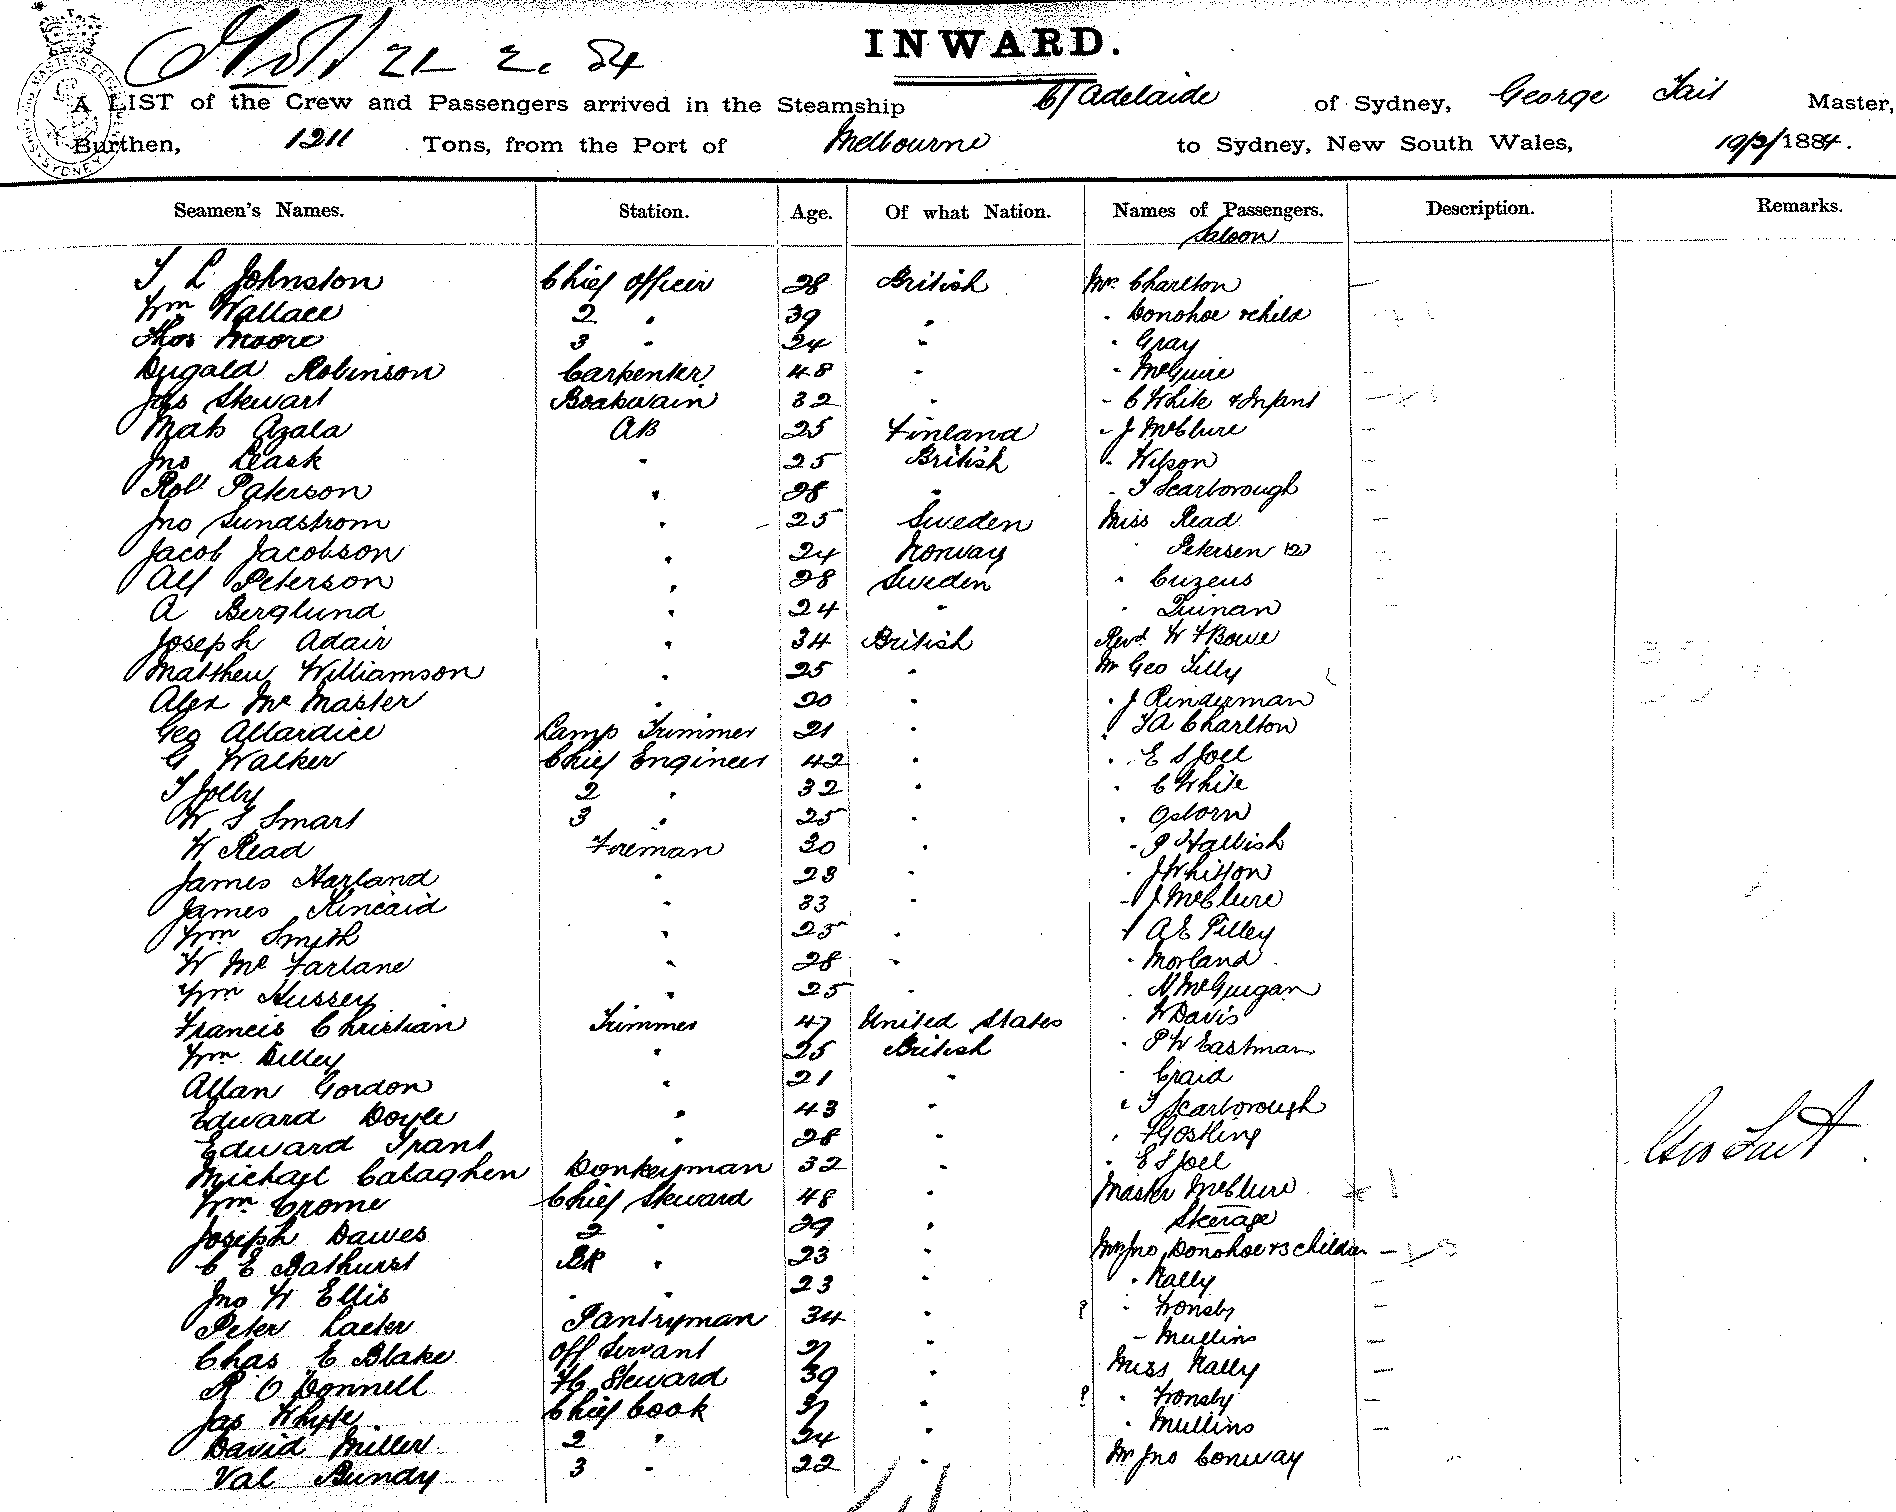 21 2. 84
INWARD.
A LIST of the Crew and Passengers arrived in the Steamship Adelaide of Sydney, George Tait Master,
Burthen, 1211 Tons, from the Port of Melbourne to Sydney, New South Wales, 19/2/1884.
Seamen's Names. Station. Age. Of what Nation. Names of Passengers. Description. Remarks.
Saloon
T L Johnston Chief Officer 28 British Mrs Charlton —
Wm Wallace 2 " 39 " " Donohoe & child
Thos Moore 3 " 24 " " Gray
Dugald Robinson Carpenter 48 " " McGuire
Jas Stewart Boatswain 32 " " C White & Infant
Mats Azala AB 25 Finland " J McClure
Jno Leask " 25 British " Wilson
Robt Paterson " 28 " " T Scarborough
Jno Sundstrom " 25 Sweden Miss Read
Jacob Jacobson " 24 Norway " Petersen (2)
Alf Peterson " 28 Sweden " Cuzens
A Berglund " 24 " " Quinan
Joseph Adair " 34 British Revd W F Bowe
Matthew Williamson " 25 " Mr Geo Tilly
Alex McMaster " 20 " " J Rinderman
Geo Allardice Lamp Trimmer 21 " " T A Charlton
G Walker Chief Engineer 42 " " E S Joel
T Jolly 2 " 32 " " C White
W S Smart 3 " 25 " " Osborn
W Read Fireman 30 " " P Hallish
James Harland " 23 " " J Whitton
James Kincaid " 33 " " J McClure
Wm Smith " 25 " " A E Pilley
W McFarlane " 28 " " Morland
Wm Hussey " 25 " " N McGuigan
Francis Christian Trimmer 47 United States " W Davis
Wm Dilley " 25 British " P W Eastman
Allan Gordon " 21 " " Craid
Edward Doyle " 43 " " T Scarborough
Edward Trant " 28 " " Gostling
Michael Calaghen Donkeyman 32 " " E S Joel
Wm Crome Chief Steward 48 " Master McClure
Steerage
Joseph Dawes 2 " 29 " Mrs Jno Donohoe & 3 children
C E Bathurst BR " 23 " " Nally
Jno W Ellis " " 23 " " Fronsby
Peter Laeter Pantryman 34 " " Mullins
Chas E Blake Off Servant " Miss Nally
R O Donnell FC Steward 39 " " Fronsby
Jas Whyte Chief Cook " " Mullins
David Miller 2 " 24 " Mr Jno Conway
Val Bundy 3 " 22 "
Geo Tait